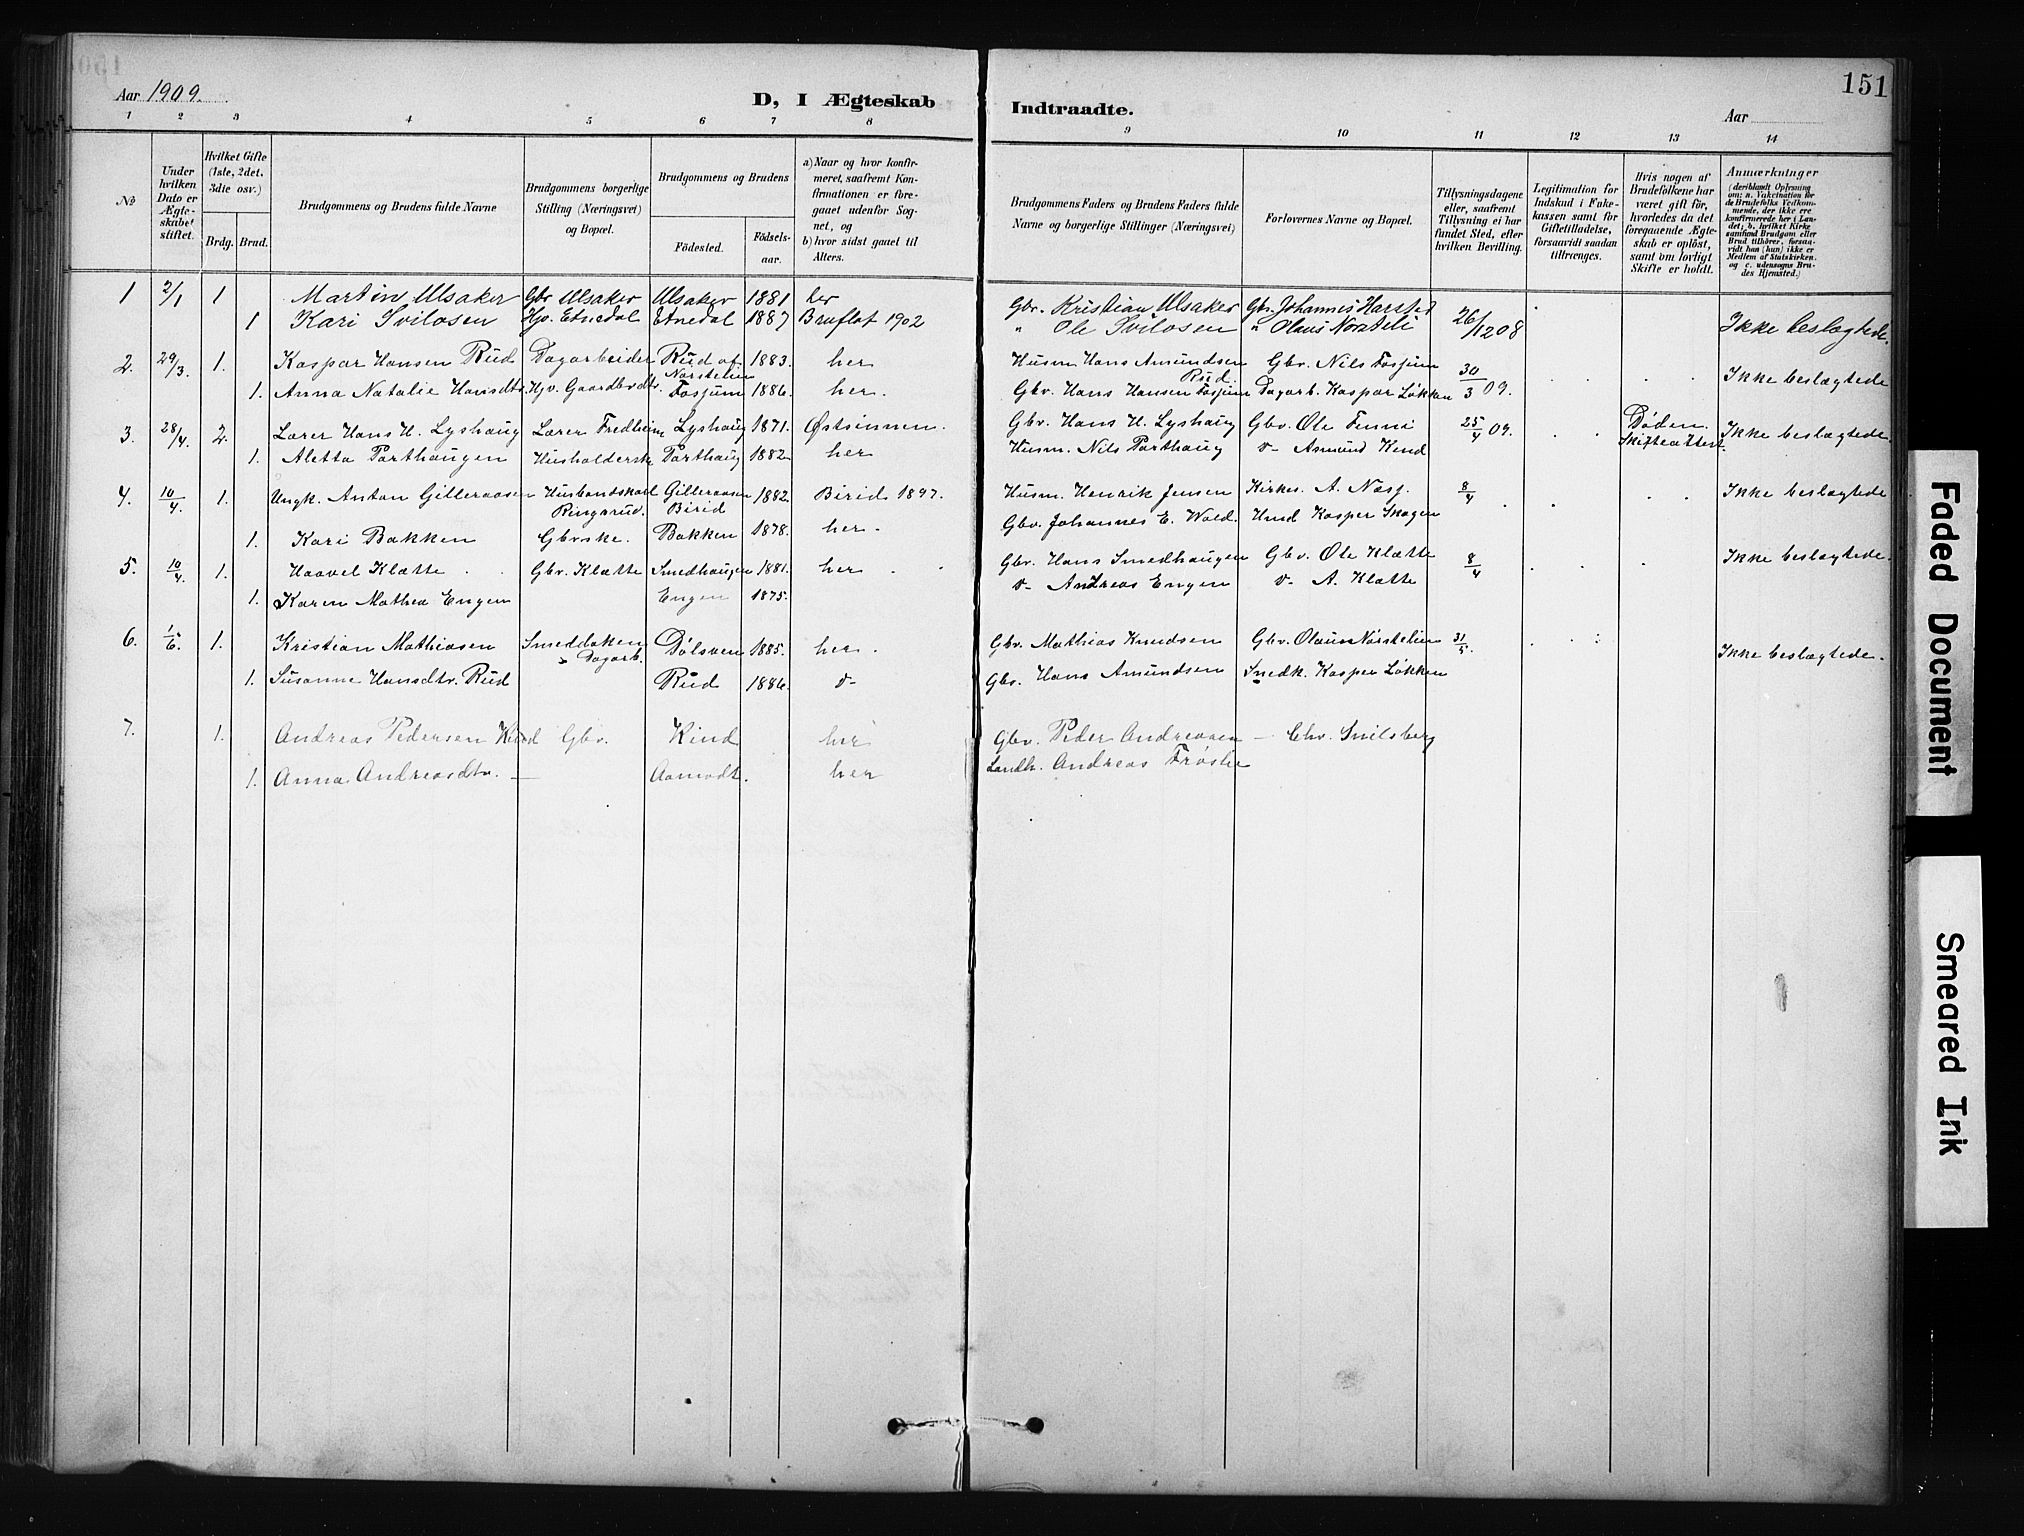 151
Aar 1909.
D, I Ægteskab Indtraadte.
Aar
1 2 3 4 5 6 7 8 9 10 11 12 13 14
№
Under hvilken Dato er Ægteskabet stiftet.
Hvilket Gifte (1ste, 2det, 3die osv.)
Brdg. Brud.
Brudgommens og Brudens fulde Navne
Brudgommens borgerlige Stilling (Næringsvei) og Bopæl.
Brudgommens og Brudens
Födested.
Födselsaar.
a) Naar og hvor konfirmeret, saafremt Konfirmationen er foregaaet udenfor Sognet, og
b) hvor sidst gaaet til Alters.
Brudgommens Faders og Brudens Faders fulde Navne og borgerlige Stillinger (Næringsvei)
Forlovernes Navne og Bopæl.
Tillysningsdagene eller, saafremt Tillysning ei har fundet Sted, efter hvilken Bevilling.
Legitimation for Indskud i Enkekassen samt for Giftetilladelse, forsaavidt saadan tiltrænges.
Hvis nogen af Brudefolkene har været gift før, hvorledes da det foregaaende Ægteskab er oplöst, samt om lovligt Skifte er holdt.
Anmærkninger
(deriblandt Oplysning om: a. Vakcination for de Brudefolks Vedkommende, der ikke ere konfirmerede her i Landet; b. hvilket Kirkesamfund Brudgom eller Brud tilhörer, forsaavidt han (hun) ikke er Medlem af Statskirken, og c. udensogns Brudes Hjemsted.)
1 2/1 1 Martin Ulsaker Gbr Ulsaker Ulsaker 1881 her Gbr. Kristian Ulsaker Gbr. Johannes Harsted 26/12 08 Ikke beslægtede.
1 Kari Svilosen Hjv. Etnedal Etnedal 1887 Bruflat 1902 " Ole Svilosen " Olaus Norsteli
2. 29/3. 1. Kaspar Hansen Rud Dagarbeider Rud af Norstelien 1883. her Husm. Hans Amundsen Rud. Gbv. Nils Fosjum 30/3 09. Ikke beslægtede
1. Anna Natalie Hansdtr. Hjv. Gaardbrdtr. Fosjum 1886. her. Gbv. Hans Hansen Fosjum Dagarb. Kaspar Løkken
3. 28/4. 2. Lærer Hans H. Lyshaug Lærer Fredheim Lyshaug 1871. Østsinnen. Gbv. Hans H. Lyshaug Gbv. Ole Finni 25/4 09. Døden. Ikke beslægtede.
1. Aletta Parthaugen Husholderske Parthaug 1882. her Husm. Nils Parthaug d- Amund Kind
4. 10/4. 1. Ungk. Anton Gilleraasen Husbondskarl Ringsrud. Gilleraasen Birid 1882. Birid 1897. Husm. Henrik Jensen Kirkes. A. Næsj. 8/4 Ikke beslægtede
1. Kari Bakken Gbrske. Bakken 1878. her. Gbv. Johannes E. Wold. Hmd Kasper Skogen
5. 10/4. 1. Haavel Klætte Gbv. Klætte Smedhaugen 1881. her Gbv. Hans Smedhaugen Gbv. Ole Klætte 8/4 Ikke beslægtede.
1. Karen Mathea Engen Engen 1875. d- Andreas Engen d- A. Klætte
6. 1/6. 1. Kristian Mathiasen Smedbaken Dagarb. Dølsven 1885. her. Gbv. Mathias Knudsen Gbv. Olaus Nørstelien 31/5. Ikke beslægtede.
1. Susanne Hansdtr. Rud Rud 1886. d- Gbr. Hans Amundsen Snedk. Kasper Løkken
7. 1. Andreas Pedersen Kind Gbv. Kind her Gbv. Peder Andreasen Chr. Smilsberg
1. Anna Andreasdtr. Aamodt. her Landh. Andreas Frøslie
Faded Document
Smeared Ink